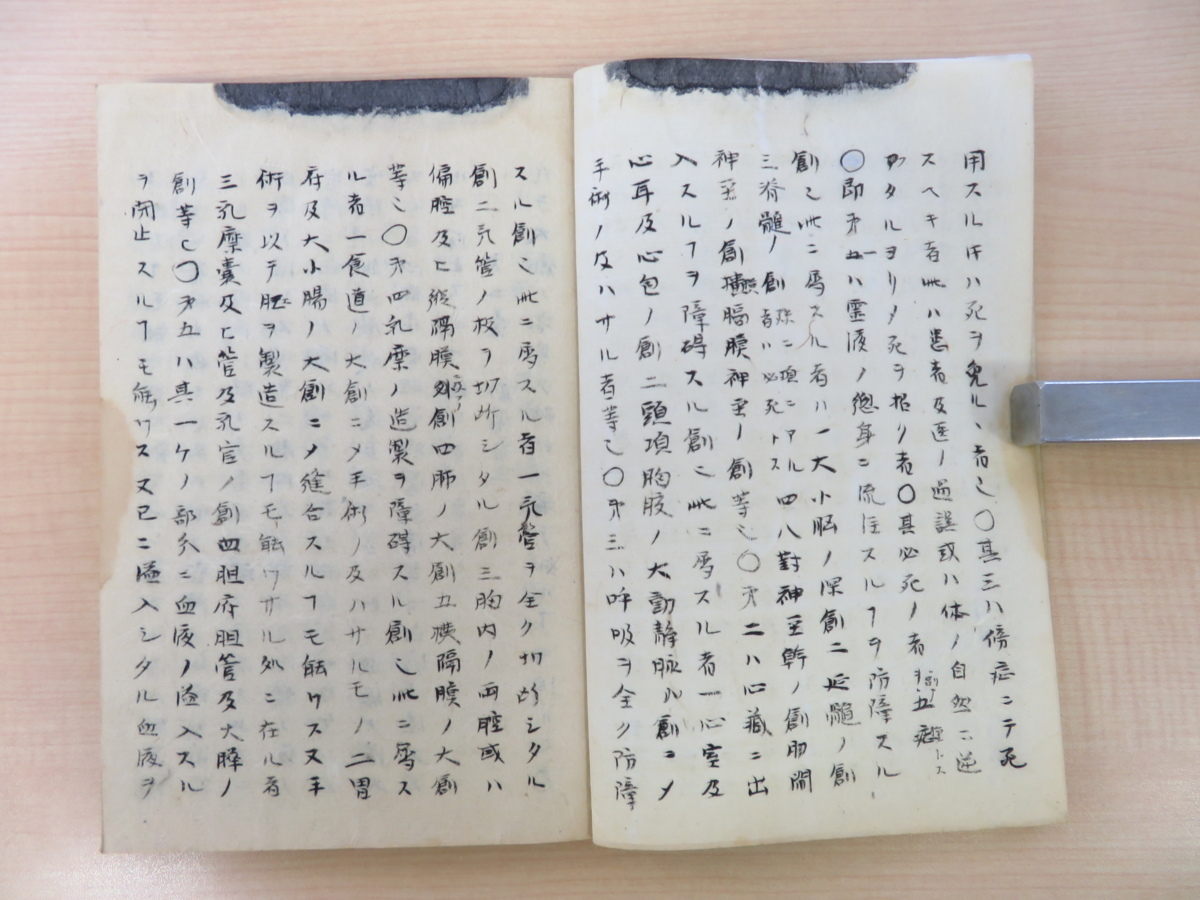 用スル𪜈ハ死ヲ免ルヽ者也〇其三ハ傍症ニテ死
スヘキ者此ハ患者及医ノ過誤或ハ体ノ自然ニ逆
タルヨリ〆死ヲ招ク者〇其必死ノ者五
〇即第一ハ霊液ノ総身ニ流注スルヿヲ防障スル
創也此ニ属スル者ハ一大小脳ノ深創二延髄ノ創
三脊髄ノ創殊ニ項ニアル者ハ必死トス四八対神茎幹ノ創肋間
神茎ノ創横膈膜神茎ノ創等也〇第二ハ心臓ニ出
入スルヿヲ障碍スル創也此ニ属スル者一心室及
心耳及心包ノ創二頭項胸腹ノ大動静脉ノ創ニ〆
手術ノ及ハサル者等也〇第三ハ呼吸ヲ全ク防障
スル創也此ニ属スル者一気管ヲ全ク切断シタル
創二気管ノ枝ヲ切断シタル創三胸内ノ両腔或ハ
偏腔及ヒ縦隔膜創四肺ノ大創五横隔膜ノ大創
等也〇第四乳糜ノ造製ヲ障碍スル創也此ニ属ス
ル者一食道ノ大創ニ〆手術ノ及ハサルモノ二胃
府及大小腸ノ大創ニ〆縫合スルヿモ能ワス又手
術ヲ以テ肛ヲ製造スルヿモ能ワサル処ニ在ル者
三乳糜嚢及ヒ管及乳官ノ創四胆府胆管及大膵ノ
創等也〇第五ハ其一ケノ部分ニ血液ノ溢入スル
ヲ閉止スルヿモ能ワス又已ニ溢入シタル血液ヲ